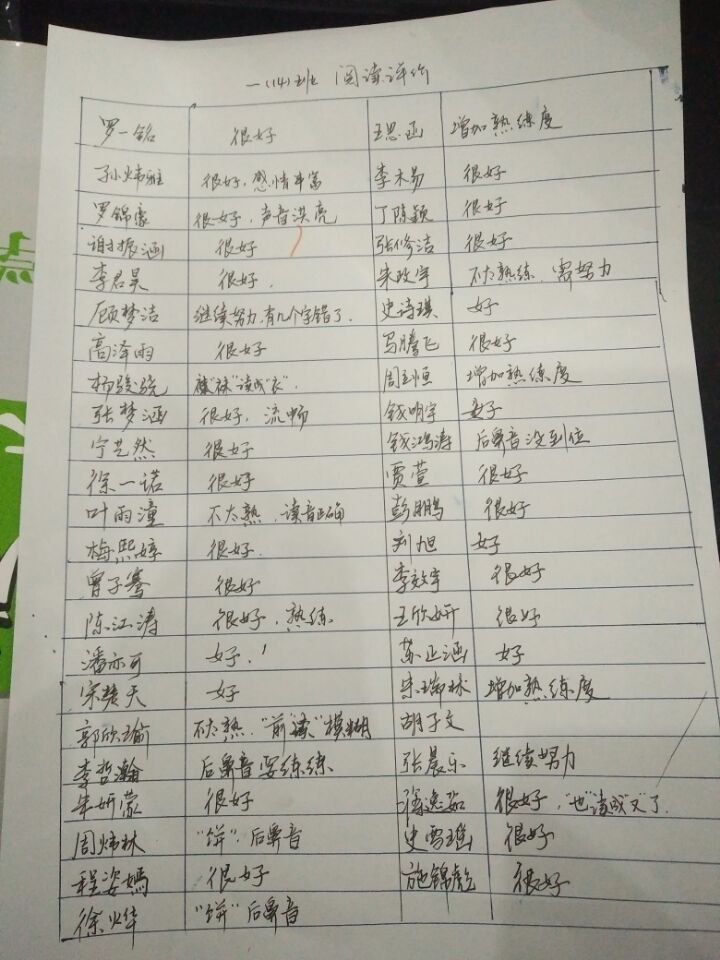 一(14)班 阅读评价
罗一铭 很好 王思函 增加熟练度
孙炜雅 很好，感情丰富 李木易 很好
罗锦豪 很好，声音洪亮 丁陈颖 很好
谢振涵 很好 张修洁 很好
李君昊 很好. 朱政宇 不太熟练，需努力
顾梦洁 继续努力.有几个字错了. 史诗琪 好
高泽雨 很好 马腾飞 很好
杨骏骁 "袜"读成"衣". 周玉恒 增加熟练度
张梦涵 很好，流畅 钱明宇 好
宁艺然 很好 钱鸿涛 后鼻音没到位
徐一诺 很好 贾萱 很好
叶雨潼 不太熟，读音正确 彭鹏 很好
梅熙婷 很好. 刘旭 好
曾子骞 很好 李效宇 很好
陈江涛 很好，熟练 王欣妍 很好
潘亦可 好！ 苏正涵 好
宋楚天 好 朱瑞林 增加熟练度
郭欣瑜 不太熟."前读"模糊 胡子文
李哲瀚 后鼻音要练练 张晨乐 继续努力
朱妍蒙 很好 逸茹 很好，"也"读成"又"了.
周炜林 "饼"后鼻音 史雪瑶 很好
程姿嫣 很好 施锦彪 很好
徐烨 "饼"后鼻音
点